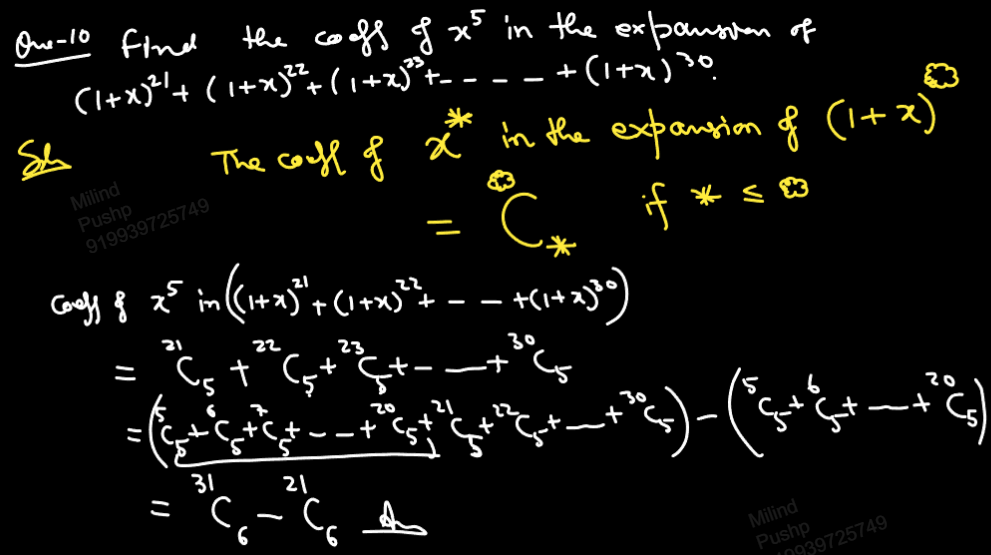 Que-10 Find the coeff of x⁵ in the expansion of
(1+x)²¹ + (1+x)²² + (1+x)²³ + - - - - + (1+x)³⁰.
Sol The coeff of x^* in the expansion of (1+x)^۞
= ^۞C_* if * ≤ ۞
Milind
Pushp
919939725749
Coeff of x⁵ in ((1+x)²¹ + (1+x)²² + - - - + (1+x)³⁰)
= ²¹C₅ + ²²C₅ + ²³C₅ + - — + ³⁰C₅
= (⁵C₅ + ⁶C₅ + ⁷C₅ + - - - + ²⁰C₅ + ²¹C₅ + ²²C₅ + — + ³⁰C₅) - (⁵C₅ + ⁶C₅ + — + ²⁰C₅)
= ³¹C₆ - ²¹C₆ An
Milind
Pushp
919939725749